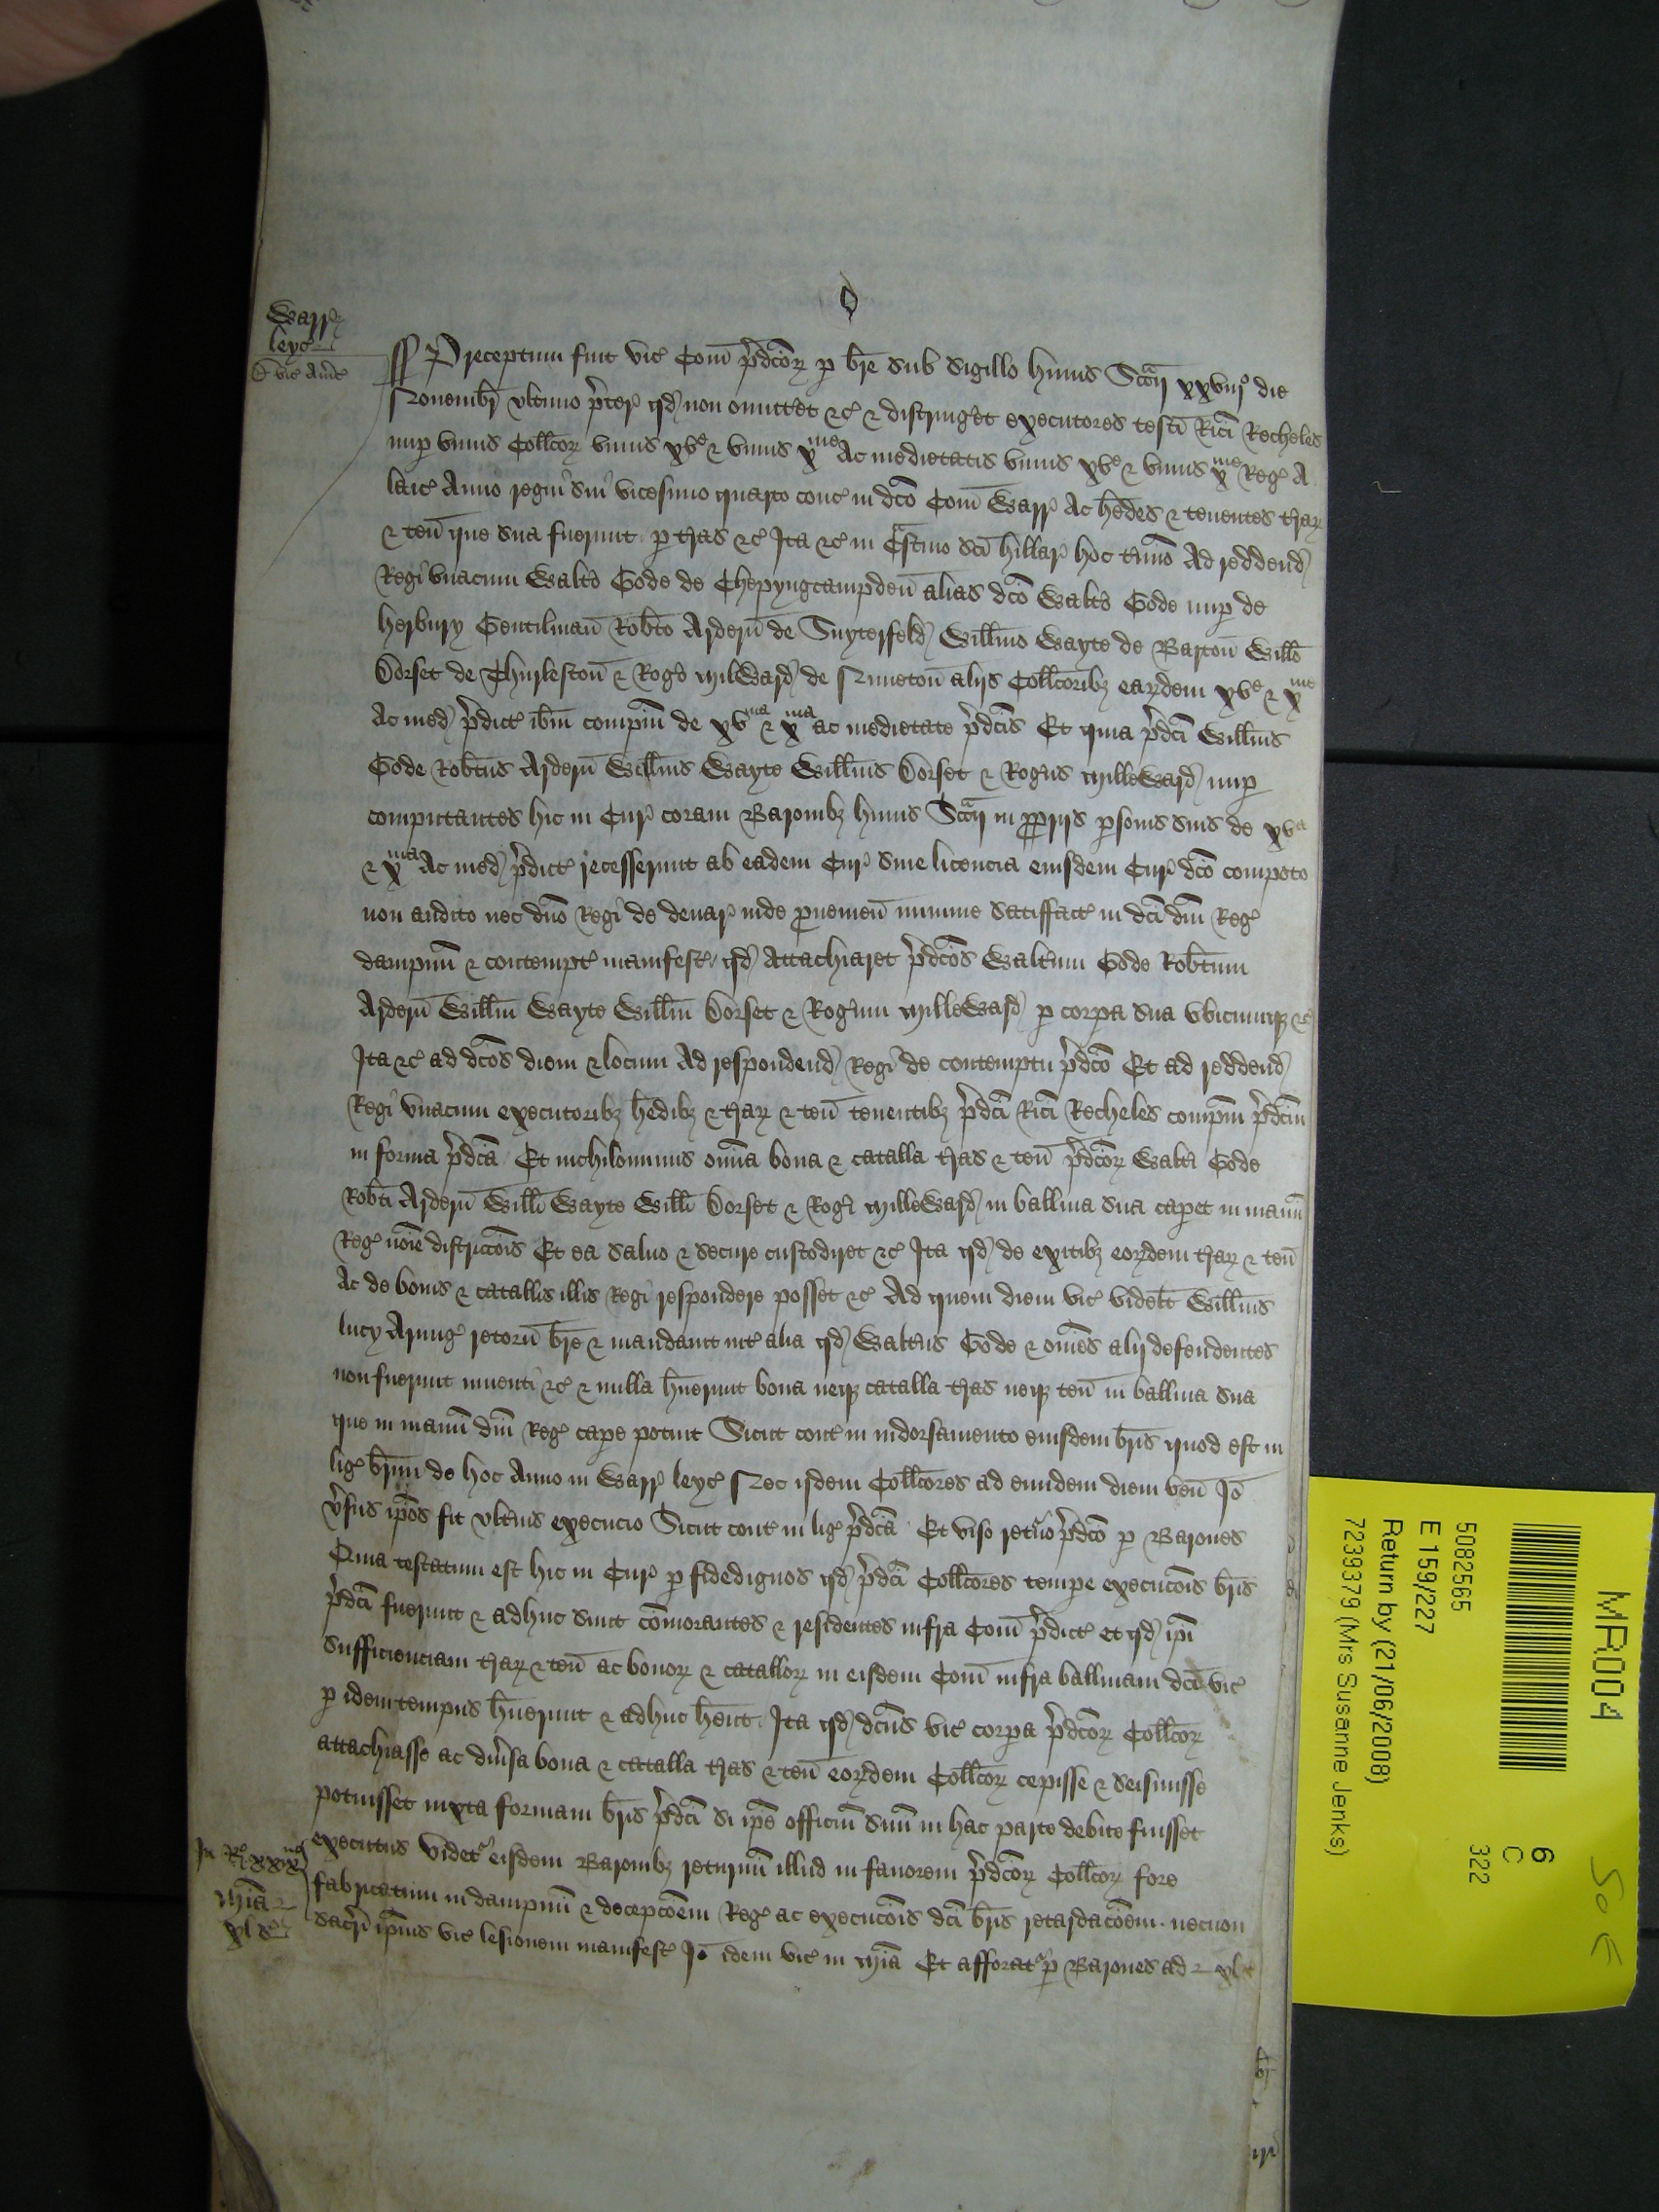 Warr
leyc
D vic Am̄c
Preceptum fuit vic Com̄ p̄dcōrꝫ p br̄e sub sigillo huius Scc̄ij xxviijº die
Nouembr̄ vltimo p̄ter qd non omittet &c & distringet executores testi Rici Recheles
nup vnius Collcorꝫ vnius xve & vnius xme Ac medietatis vnius xve & vnius xme Reg A
laic Anno regni sui vicesimo quarto conc in dco Com̄ Warr Ac hedes & tenentes t̄rarꝫ
& ten̄ que sua fuerunt p t̄ras &c Ita &c in Cr̄stino sci hillar hoc t̄mio Ad reddend
Regi vnacum Walto Gode de Chepyngcampden̄ alias dco Walto Gode nup de
herbury Gentilman̄ Robto Ardern̄ de Snyterfeld Willmo Wayte de Barton̄ Willo
Dorset de Thurleston̄ & Rogo Milward de Nuneton̄ alijs Collcoribꝫ earꝫdem xve & xme
Ac med p̄dict ibm compm̄ de xvma & xma ac medietate p̄dcis Et quia p̄dci Willms
Gode Robtus Ardern̄ Willms Wayte Willms Dorset & Rogus Milleward nup
computantes hic in Cur coram Baronibꝫ huius Scc̄ij in pprijs psonis suis de xva
& xma Ac med p̄dict recesserunt ab eadem Cur sine licencia eiusdem Cur dco compoto
non audito nec dno Regi de denar inde puenien̄ minime satisfact in dci dni Reg
dampnu̅ & contempt manifest qd Attachiaret p̄dcos Waltum Gode Robtum
Ardern̄ Willm Wayte Willm Dorset & Rogum Milleward p corpa sua vbicumqꝫ &c
Ita &c ad dcos diem & locum Ad respondend Regi de contemptu p̄dco Et ad reddend
Regi vnacum executoribꝫ hedibꝫ & t̄rarꝫ & ten̄ tenentibꝫ p̄dci Rici Recheles compm̄ p̄dcm
in forma p̄dca Et nichilominus omia bona & catalla t̄ras & ten̄ p̄dcorꝫ Walti Gode
Robti Ardern̄ Willi Wayte Willi Dorset & Rogi Milleward in balliua sua capet in manu̅
Reg noie districcois Et ea saluo & secure custodiret &c Ita qd de exitibꝫ eorꝫdem t̄rarꝫ & ten̄
Ac de bonis & catallis illis Regi respondere posset &c Ad quem diem vic videlt Willms
lucy Armig retorn̄ br̄e & mandauit int alia qd Waltus Gode & omes alij defendentes
non fuerunt inuenti &c & nulla huerunt bona neqꝫ catalla t̄ras neqꝫ ten̄ in balliua sua
que in manu̅ dni Reg cape potuit Sicut cont in indorsamento eiusdem br̄is quod est in
lig br̄ium de hoc Anno in Warr leyc Nec ijdem Collcores ad eundem diem ven̄ Iō
v̄sus ipos fit vltius execucio Sicut cont in lig p̄dca Et viso ret̄no p̄dco p Barones
Quia testatum est hic in Cur p fidedignos qd p̄dci Collcores tempe execucois br̄is
p̄dci fuerunt & adhuc sunt com̄orantes & residentes infra Com̄ p̄dict et qd ipi
sufficienciam t̄rarꝫ & ten̄ ac bonorꝫ & catallorꝫ in eisdem Com̄ infra balliuam dci vic
p idem tempus huerunt & adhuc hent Ita qd dcus vic corpa p̄dcorꝫ Collcorꝫ
attachiasse ac diu̅sa bona & catalla t̄ras & ten̄ eorꝫdem Collcorꝫ cepisse & seisiuisse
potuisset iuxta formam br̄is p̄dci si ipe officiu̅ suu̅ in hac parte debite fuisset
executus videtr eisdem Baronibꝫ returnu̅ illud in fauorem p̄dcorꝫ Collcorꝫ fore
fabricatum in dampnu̅ & decepcoem Reg ac execucois dci br̄is retardacoem necnon
sacri ipius vic lesionem manifest Iō idem vic in mi̅a Et afforatr p Barones ad xl s
In Ro xxixno
mi̅a
xl s
MR004
5082665
E 159/227
Return by (21/06/2008)
7239379 (Mrs Susanne Jenks)
6
C
322